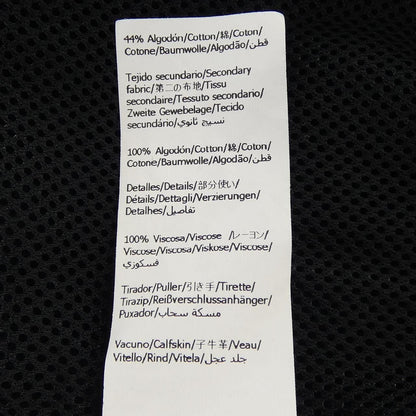 44% Algodón/Cotton/綿/Coton/
Cotone/Baumwolle/Algodão/قطن
Tejido secundario/Secondary
fabric/第二の布地/Tissu
secondaire/Tessuto secondario/
Zweite Gewebelage/Tecido
secundário/نسيج ثانوي
100% Algodón/Cotton/綿/Coton/
Cotone/Baumwolle/Algodão/قطن
Detalles/Details/部分使い/
Détails/Dettagli/Verzierungen/
Detalhes/تفاصيل
100% Viscosa/Viscose /レーヨン/
Viscose/Viscosa/Viskose/Viscose/
فسكوزي
Tirador/Puller/引き手/Tirette/
Tirazip/Reißverschlussanhänger/
Puxador/مسكة سحاب
Vacuno/Calfskin/子牛革/Veau/
Vitello/Rind/Vitela/جلد عجل